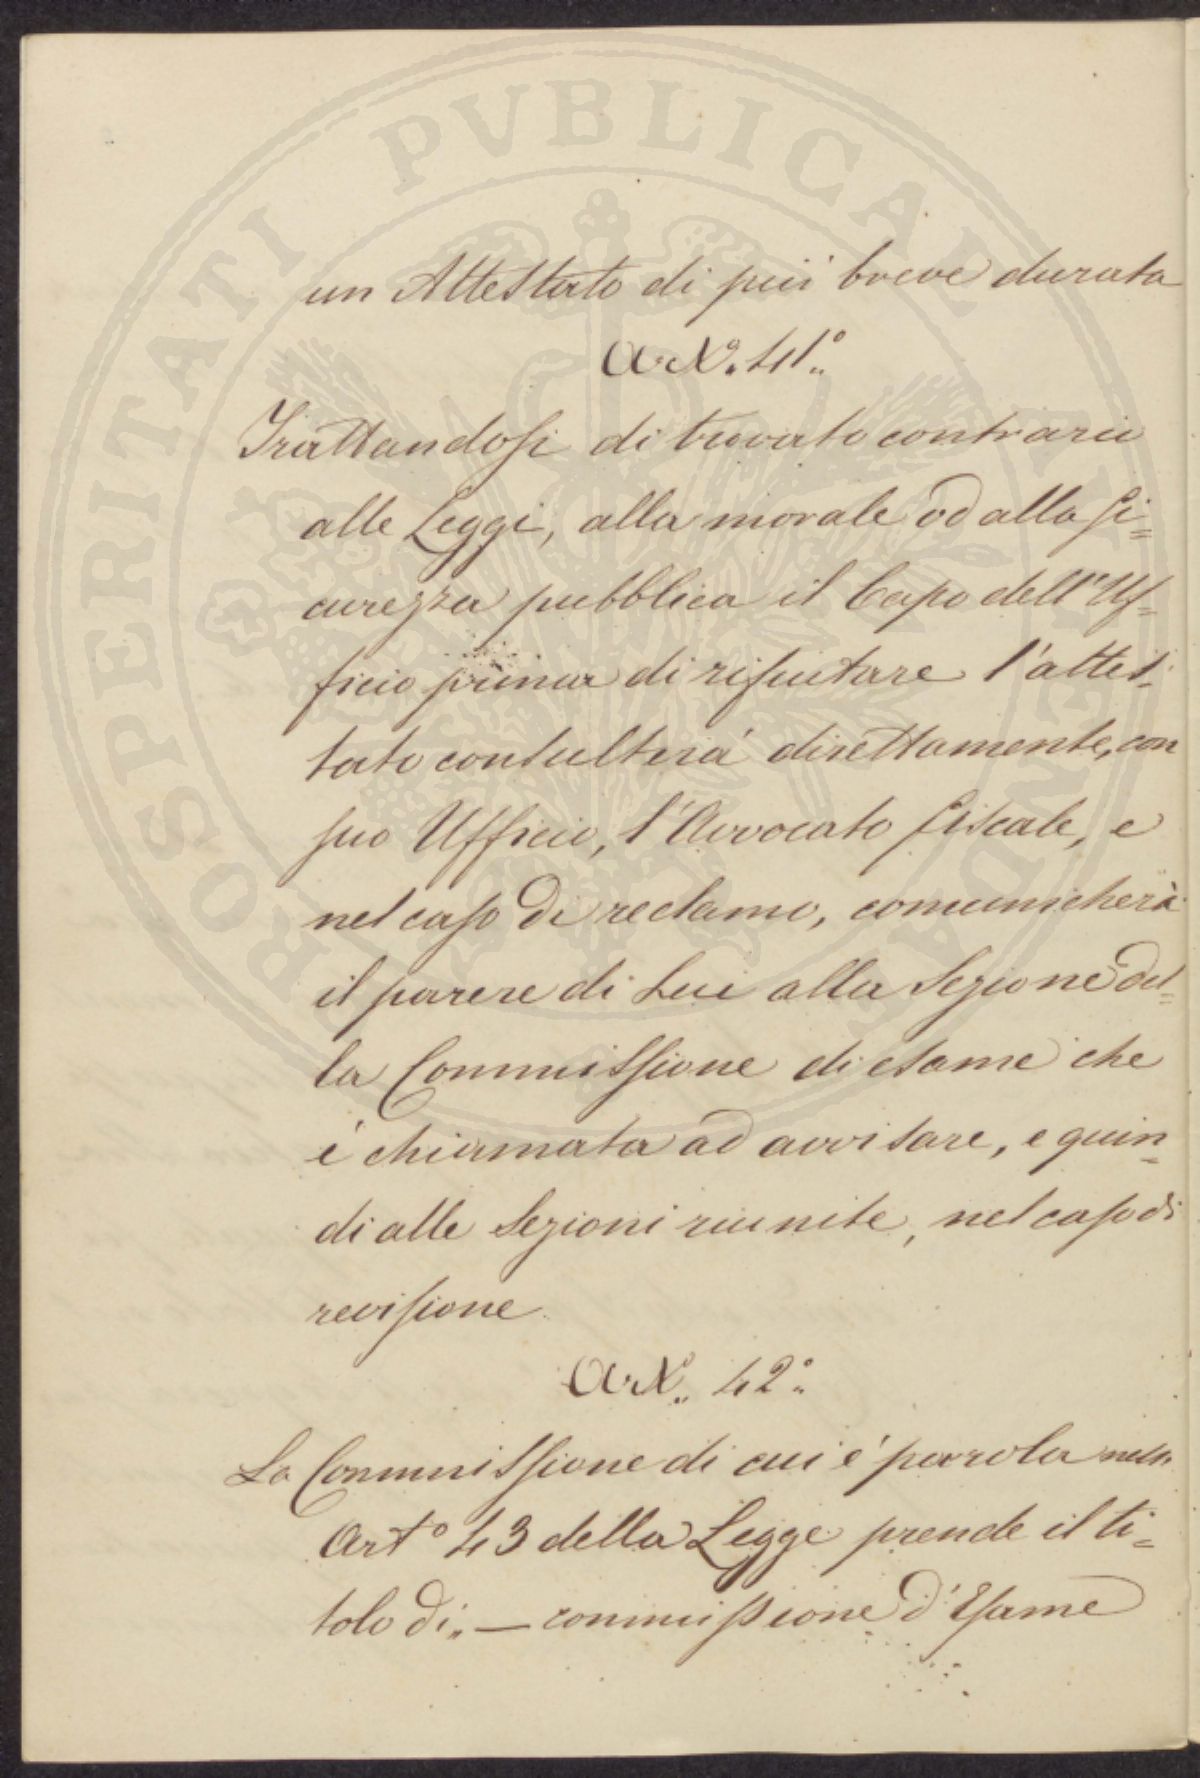 PROSPERITATI PVBLICAE AVGENDAE
un Attestato di più breve durata
Art. 41°
Trattandosi di trovato contrario
alle Leggi, alla morale od alla si=
curezza pubblica il Capo dell'Uf=
ficio prima di rifiutare l'attes=
tato consulterà direttamente, con
suo Ufficio, l'Avvocato fiscale, e
nel caso di reclamo, comunicherà
il parere di Lui alla Sezione del=
la Commissione di esame che
è chiamata ad avvisare, e quin=
di alle Sezioni riunite, nel caso di
revisione
Art. 42°
La Commissione di cui è parola nello
Art° 43 della Legge prende il ti=
tolo di „ — commissione d'Esame